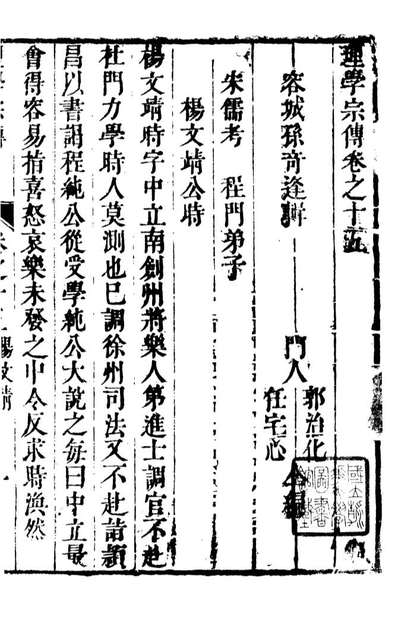 理學宗傳卷之十五
容城孫奇逢輯
門人
郭治化
任宅心
仝編
宋儒考 程門弟子
楊文靖公時
楊文靖時字中立南劍州將樂人第進士調官不赴
杜門力學時人莫測也已調徐州司法又不赴詣潁
昌以書謁程純公從受學純公大說之每曰中立最
會得容易指喜怒哀樂未發之中令反求時渙然